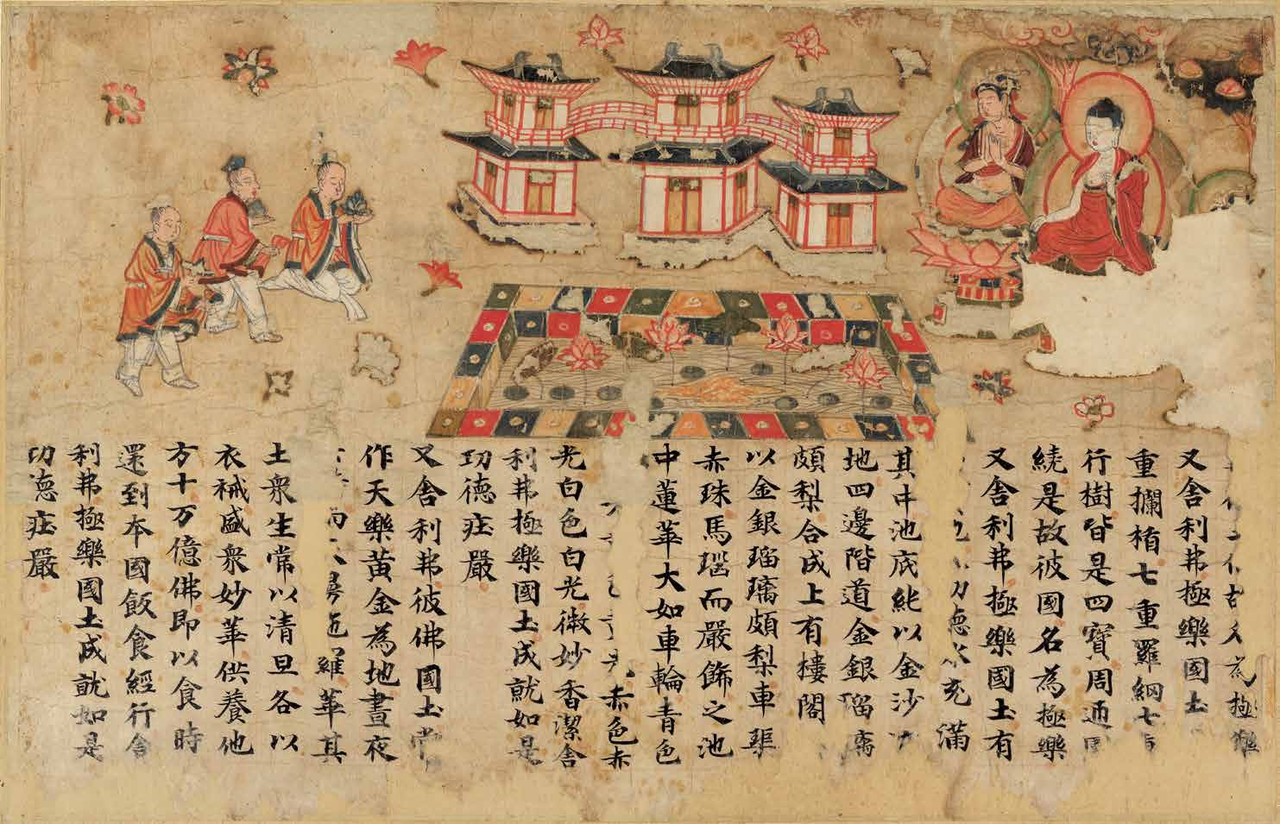 為極樂
又舍利弗極樂國土
重攔楯七重羅網七
行樹皆是四寶周迊
繞是故彼國名為極樂
又舍利弗極樂國土有
功德水充滿
其中池底純以金沙
地四邊階道金銀瑠璃
頗梨合成上有樓閣
以金銀瑠璃頗梨車渠
赤珠馬瑙而嚴飾之池
中蓮華大如車輪青色
赤色赤
光白色白光微妙香潔舍
利弗極樂國土成就如是
功德庄嚴
又舍利弗彼佛國土常
作天樂黃金為地晝夜
羅華其
土衆生常以清旦各以
衣祴盛衆妙華供養他
方十万億佛即以食時
還到本國飯食經行舍
利弗極樂國土成就如是
功德庄嚴